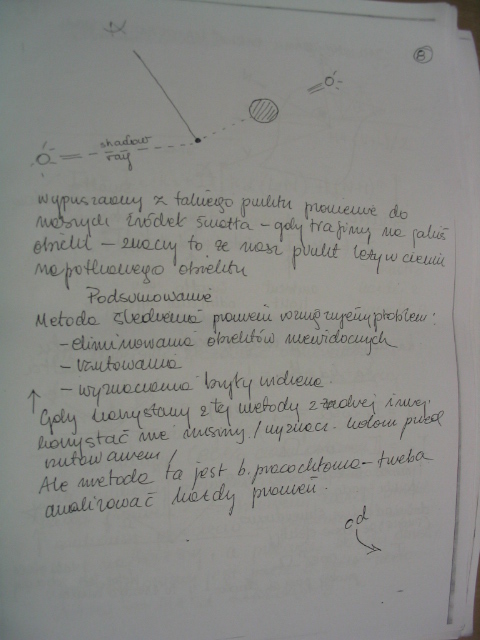 8
shadow
ray
wypuszczamy z takiego punktu promienie do
naszych źródeł światła – gdy trafimy na jakiś
obiekt – znaczy to że nasz punkt leży w cieniu
napotkanego obiektu
Podsumowanie
Metoda śledzenia promieni rozwiązuje problem:
– eliminowania obiektów niewidocznych
– rzutowania
– wyznaczania bryły widzenia.
Gdy korzystamy z tej metody z żadnej innej
korzystać nie musimy / wyznacz. kolorów przed
rzutowaniem /
Ale metoda ta jest b. pracochłonna – trzeba
analizować każdy promień.
od